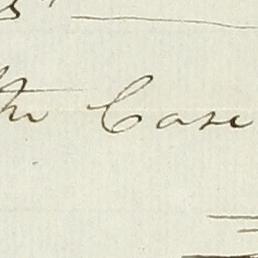 the Case